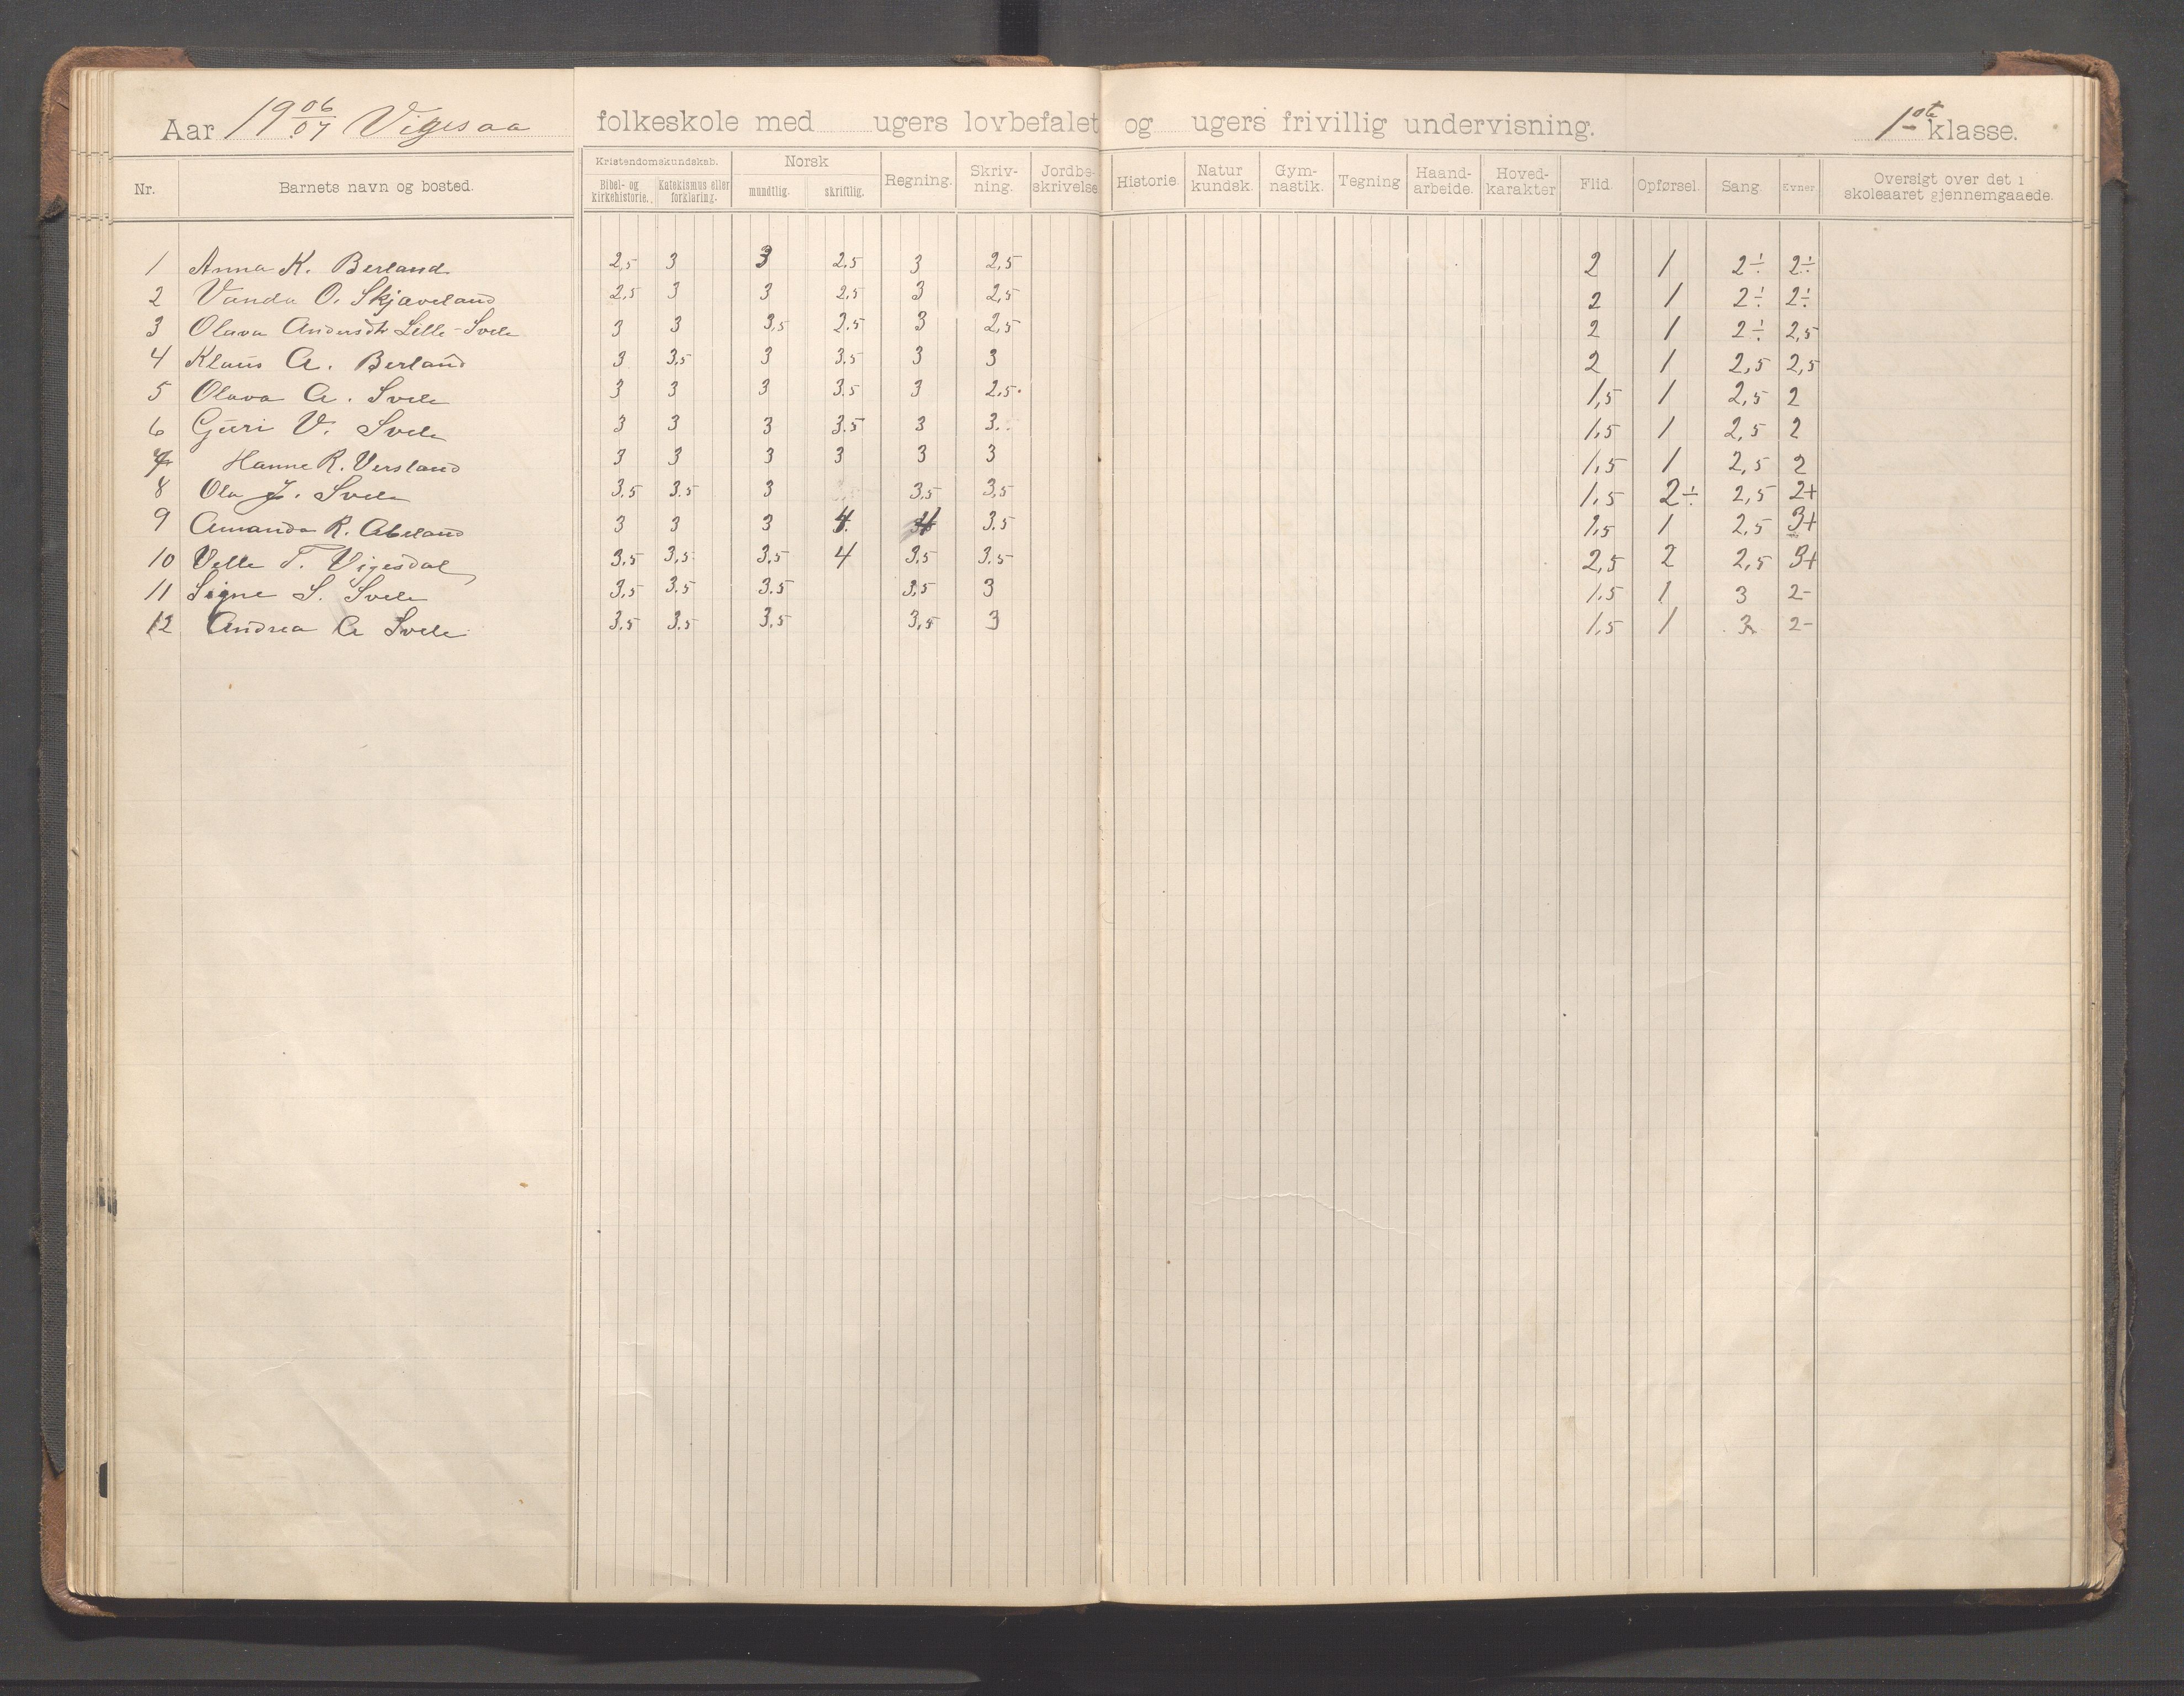 Aar 1906/07 Vigesaa folkeskole med ugers lovbefalet og ugers frivillig undervisning. 1ste klasse.
Nr. Barnets navn og bosted. Kristendomskundskab. Bibel- og kirkehistorie. Katekismus eller forklaring. Norsk mundtlig. skriftlig. Regning. Skriv-ning. Jordbe-skrivelse Historie. Natur kundsk. Gym-nastik. Tegning Haand-arbeide. Hoved-karakter Flid. Opførsel. Sang. Evner. Oversigt over det i skoleaaret gjennemgaaede.
1 Anna K. Berland 2,5 3 3 2,5 3 2,5 2 1 2÷ 2÷
2 Vanda O. Skjæveland 2,5 3 3 2,5 3 2,5 2 1 2÷ 2÷
3 Olava Andersdtr Lille-Svele 3 3 3,5 2,5 3 2,5 2 1 2÷ 2,5
4 Klaus A. Berland 3 3,5 3 3,5 3 3 2 1 2,5 2,5
5 Olava A. Svele 3 3 3 3,5 3 2,5 1,5 1 2,5 2
6 Guri V. Svele 3 3 3 3,5 3 3 1,5 1 2,5 2
7 Hanne R. Versland 3 3 3 3 3 3 1,5 1 2,5 2
8 Ola J. Svele 3,5 3,5 3 3,5 3,5 1,5 2÷ 2,5 2+
9 Amanda R. Abeland 3 3 3 4 4 3,5 1,5 1 2,5 3+
10 Velle T. Vigesdal 3,5 3,5 3,5 4 3,5 3,5 2,5 2 2,5 3+
11 Signe S. Svele 3,5 3,5 3,5 3,5 3 1,5 1 3 2-
12 Andrea A Svele 3,5 3,5 3,5 3,5 3 1,5 1 3 2-